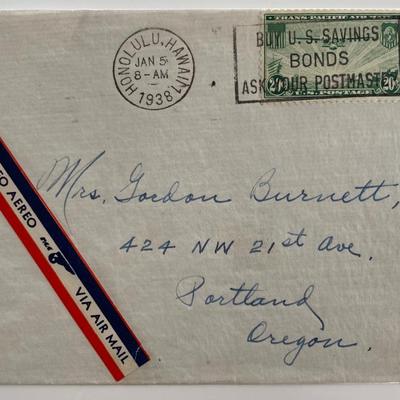 HONOLULU, HAWAII
JAN 5
8-AM
1938
TRANS-PACIFIC AIR MAIL
BUY U.S. SAVINGS
BONDS
ASK YOUR POSTMASTER
20¢ U.S. POSTAGE 20¢
AEREO
VIA AIR MAIL
Mrs. Gordon Burnett,
424 NW 21st Ave.
Portland
Oregon.